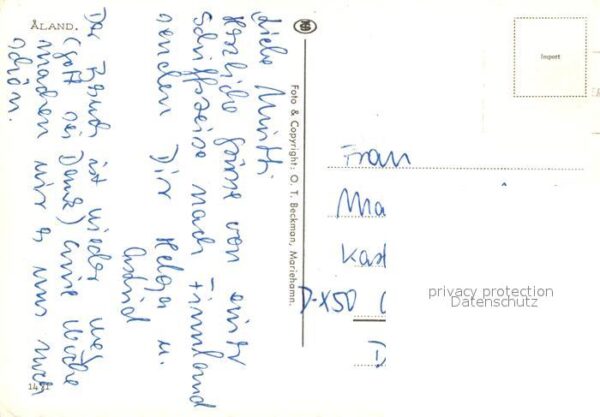 ÅLAND.
Liebe Mutti
Herzliche Grüsse von einer
Schiffsreise nach Finnland
senden Dir Helga u.
Astrid
Der Besuch ist wieder weg
(Gott sei Dank) eine Woche
machen wir es uns noch
schön.
1421
Foto & Copyright: O. T. Beckman, Mariehamn.
Import
Frau
Ma
Kast
D-X50
D
privacy protection
Datenschutz